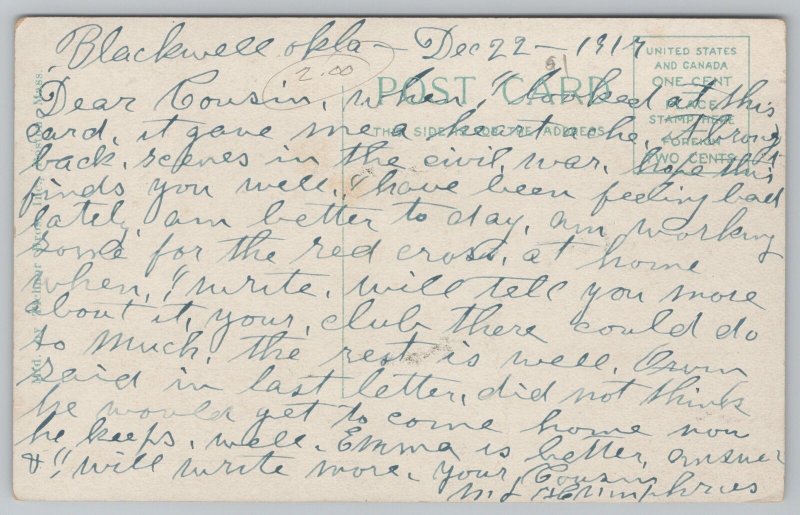 Blackwell okla - Dec 22 - 1917
2.00
POST CARD
THIS SIDE IS FOR THE ADDRESS
UNITED STATES
AND CANADA
ONE CENT
PLACE
STAMP HERE
FOREIGN
TWO CENTS
Dear Cousin, when, "I looked at this
card, it gave me a heart ache, it brought
back, scenes in the civil, war, hope this
finds you well, "I have been feeling bad
lately, am better to day, am working
some for the red cross, at home
when, "I write, will tell you more
about it, your, club there could do
so much, the rest is well, Orvin
said in last letter, did not think
he would get to come home now
he keeps, well. Emma is better, answer
& "I will write more, your Cousin
M L Humphries